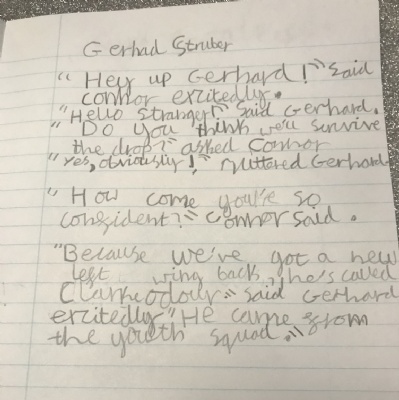 Gerhad Struber
"Hey up Gerhard!" said
connor excitedly.
"Hello stranger!" said Gerhard.
"Do you think we'll survive
the drop?" asked Connor
"yes, obviously!" muttered Gerhard
"How come you're so
consident?" Connor said.
"Because we've got a new
left wing back, he's called
Clarkeodour" said Gerhard
excitedly "He came from
the youth squad."